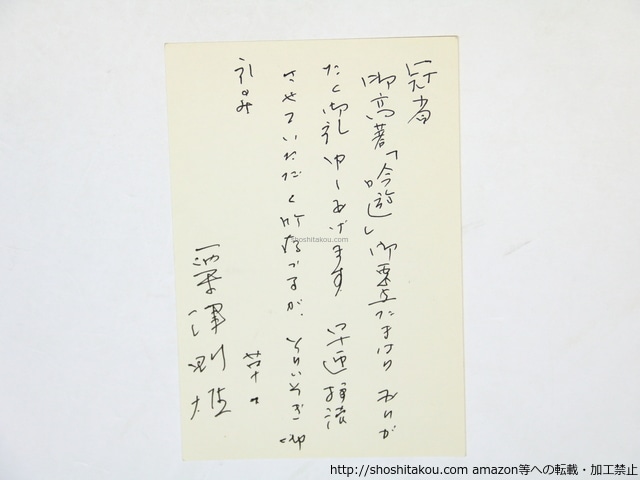 冠省
御高著「吟遊」御恵与たまはりありが
たく御礼申しあげます 早速拝読
させていただく所存ですが、とりいそぎ御
礼のみ
廿日
粟津則雄
shoshitakou.com
http://shoshitakou.com amazon等への転載・加工禁止